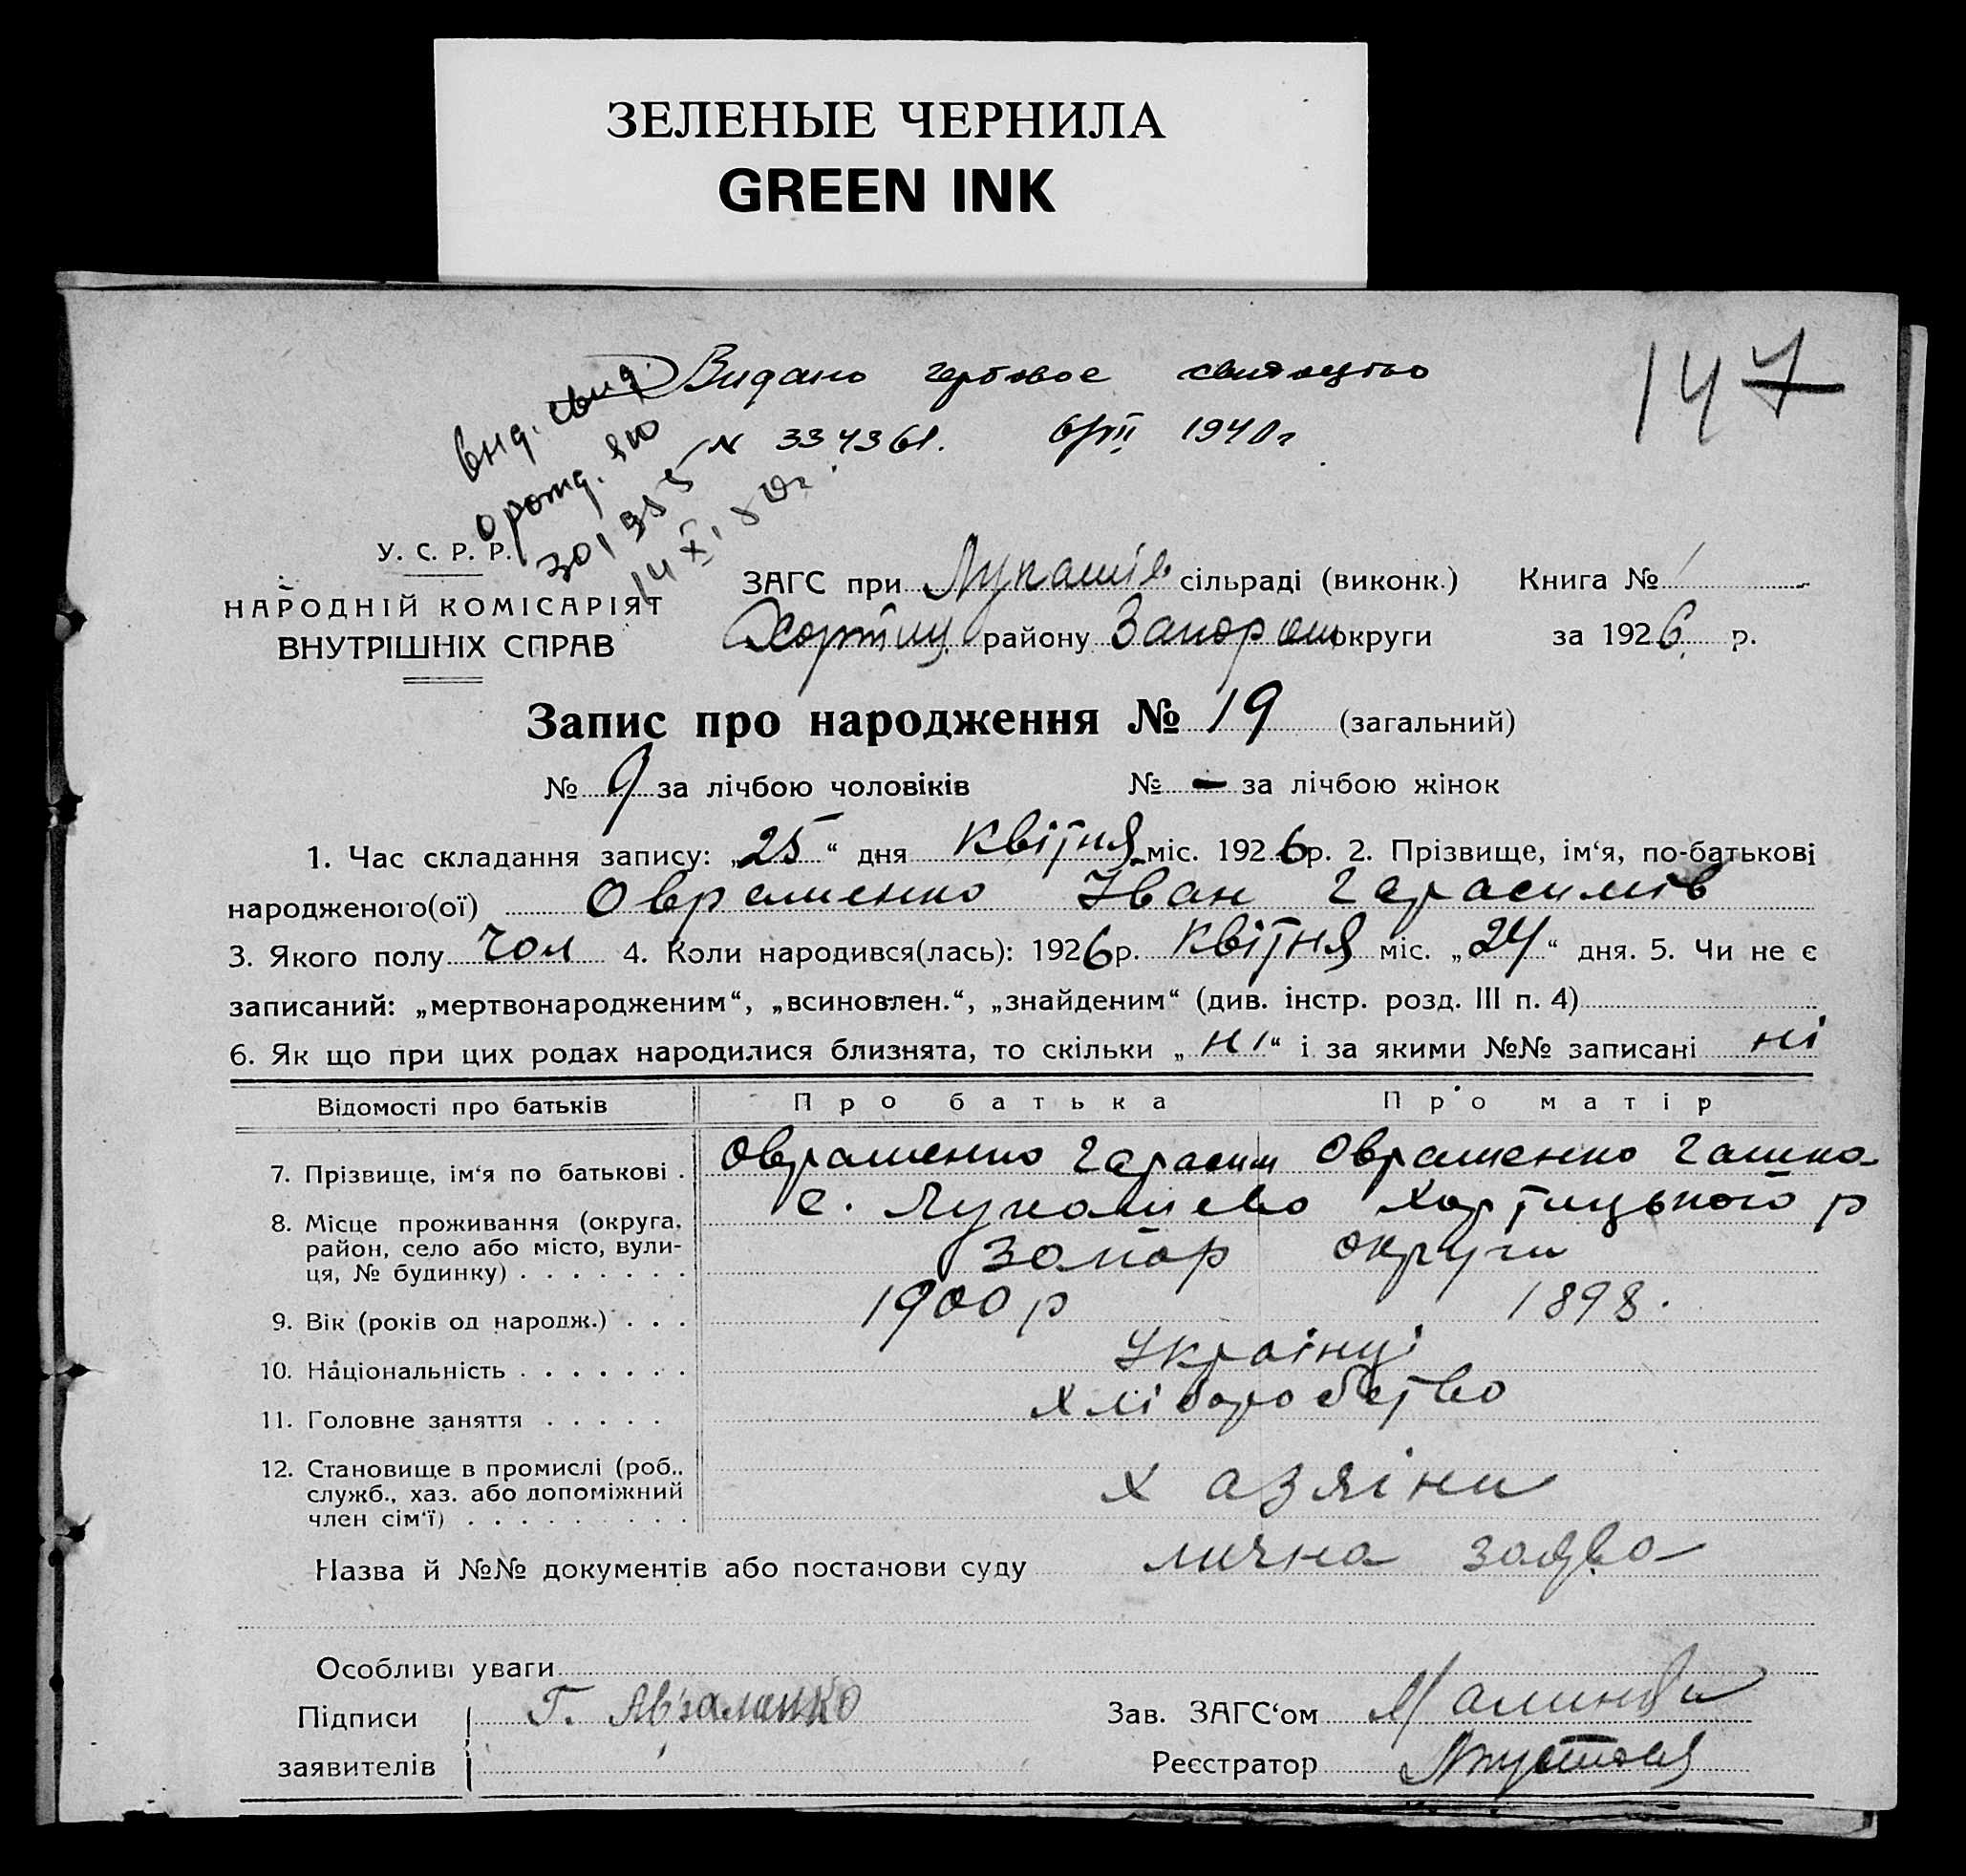 ЗЕЛЕНЫЕ ЧЕРНИЛА
GREEN INK
147
Видано гербовое свидоцтво
№ 334361. 1940 г
вид. свид
о рожд.
301355
14 XI
У. С. Р. Р.
НАРОДНІЙ КОМІСАРІЯТ
ВНУТРІШНІХ СПРАВ
ЗАГС при Лукашів сільраді (виконк.) Книга № 1
Хортиц району Запорож округи за 1926 р.
Запис про народження № 19 (загальний)
№ 9 за лічбою чоловіків № - за лічбою жінок
1. Час складання запису: „25“ дня квітня міс. 1926 р. 2. Прізвище, ім‘я, по-батькові
народженого(ої) Овраменко Іван Гарасимів
3. Якого полу чол 4. Коли народився(лась): 1926 р. квітня міс. „24“ дня. 5. Чи не є
записаний: „мертвонародженим“, „всиновлен.“, „знайденим“ (див. інстр. розд. III п. 4)
6. Як що при цих родах народилися близнята, то скільки „ні“ і за якими №№ записані ні
Відомості про батьків Про батька Про матір
7. Прізвище, ім‘я по батькові . Овраменко Гарасим Овраменко Гашка
8. Місце проживання (округа, с. Лукашево Хортицького р
район, село або місто, вули- Запор округи
ця, № будинку) . . . . . . .
9. Вік (років од народж.) . . . 1900 р 1898.
10. Національність . . . . . . . Українці
11. Головне заняття . . . . . хліборобство
12. Становище в промислі (роб.,
служб., хаз. або допоміжний хазяіни
член сім‘ї) . . . . . . . . .
Назва й №№ документів або постанови суду лична заява
Особливі уваги
Підписи Г. Авраменко Зав. ЗАГС‘ом
заявителів Реєстратор